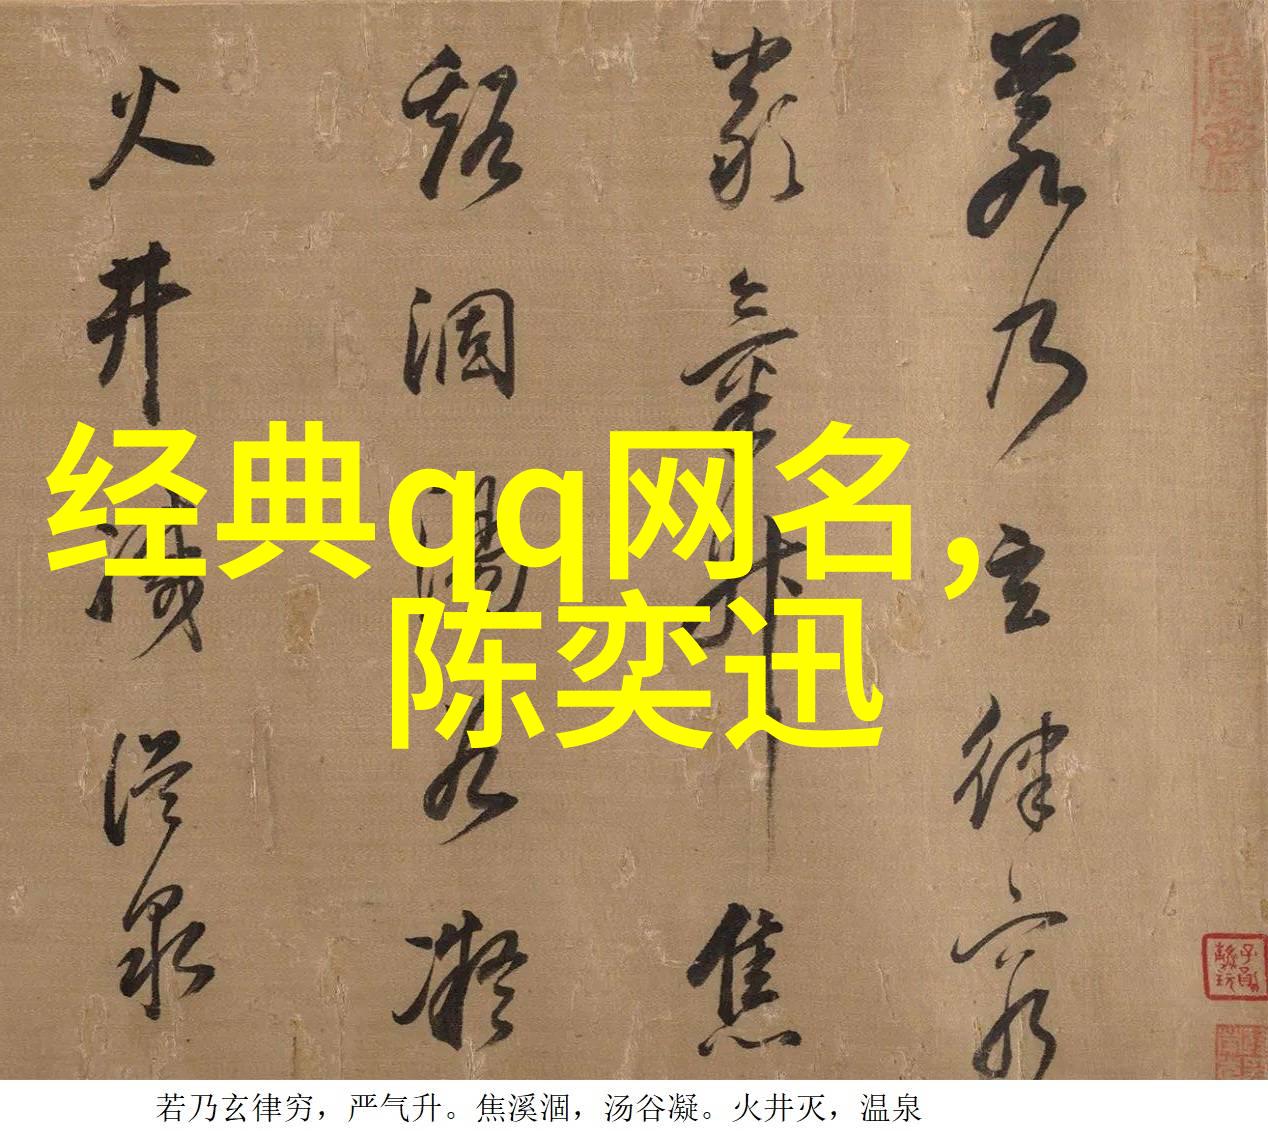 经典qq网名，
陈奕迅
若乃玄律穷
严气升焦
谿涸汤谷凝
火井滅温泉
子彝
寶玩
若乃玄律穷，严气升。焦溪涸，汤谷凝。火井灭，温泉